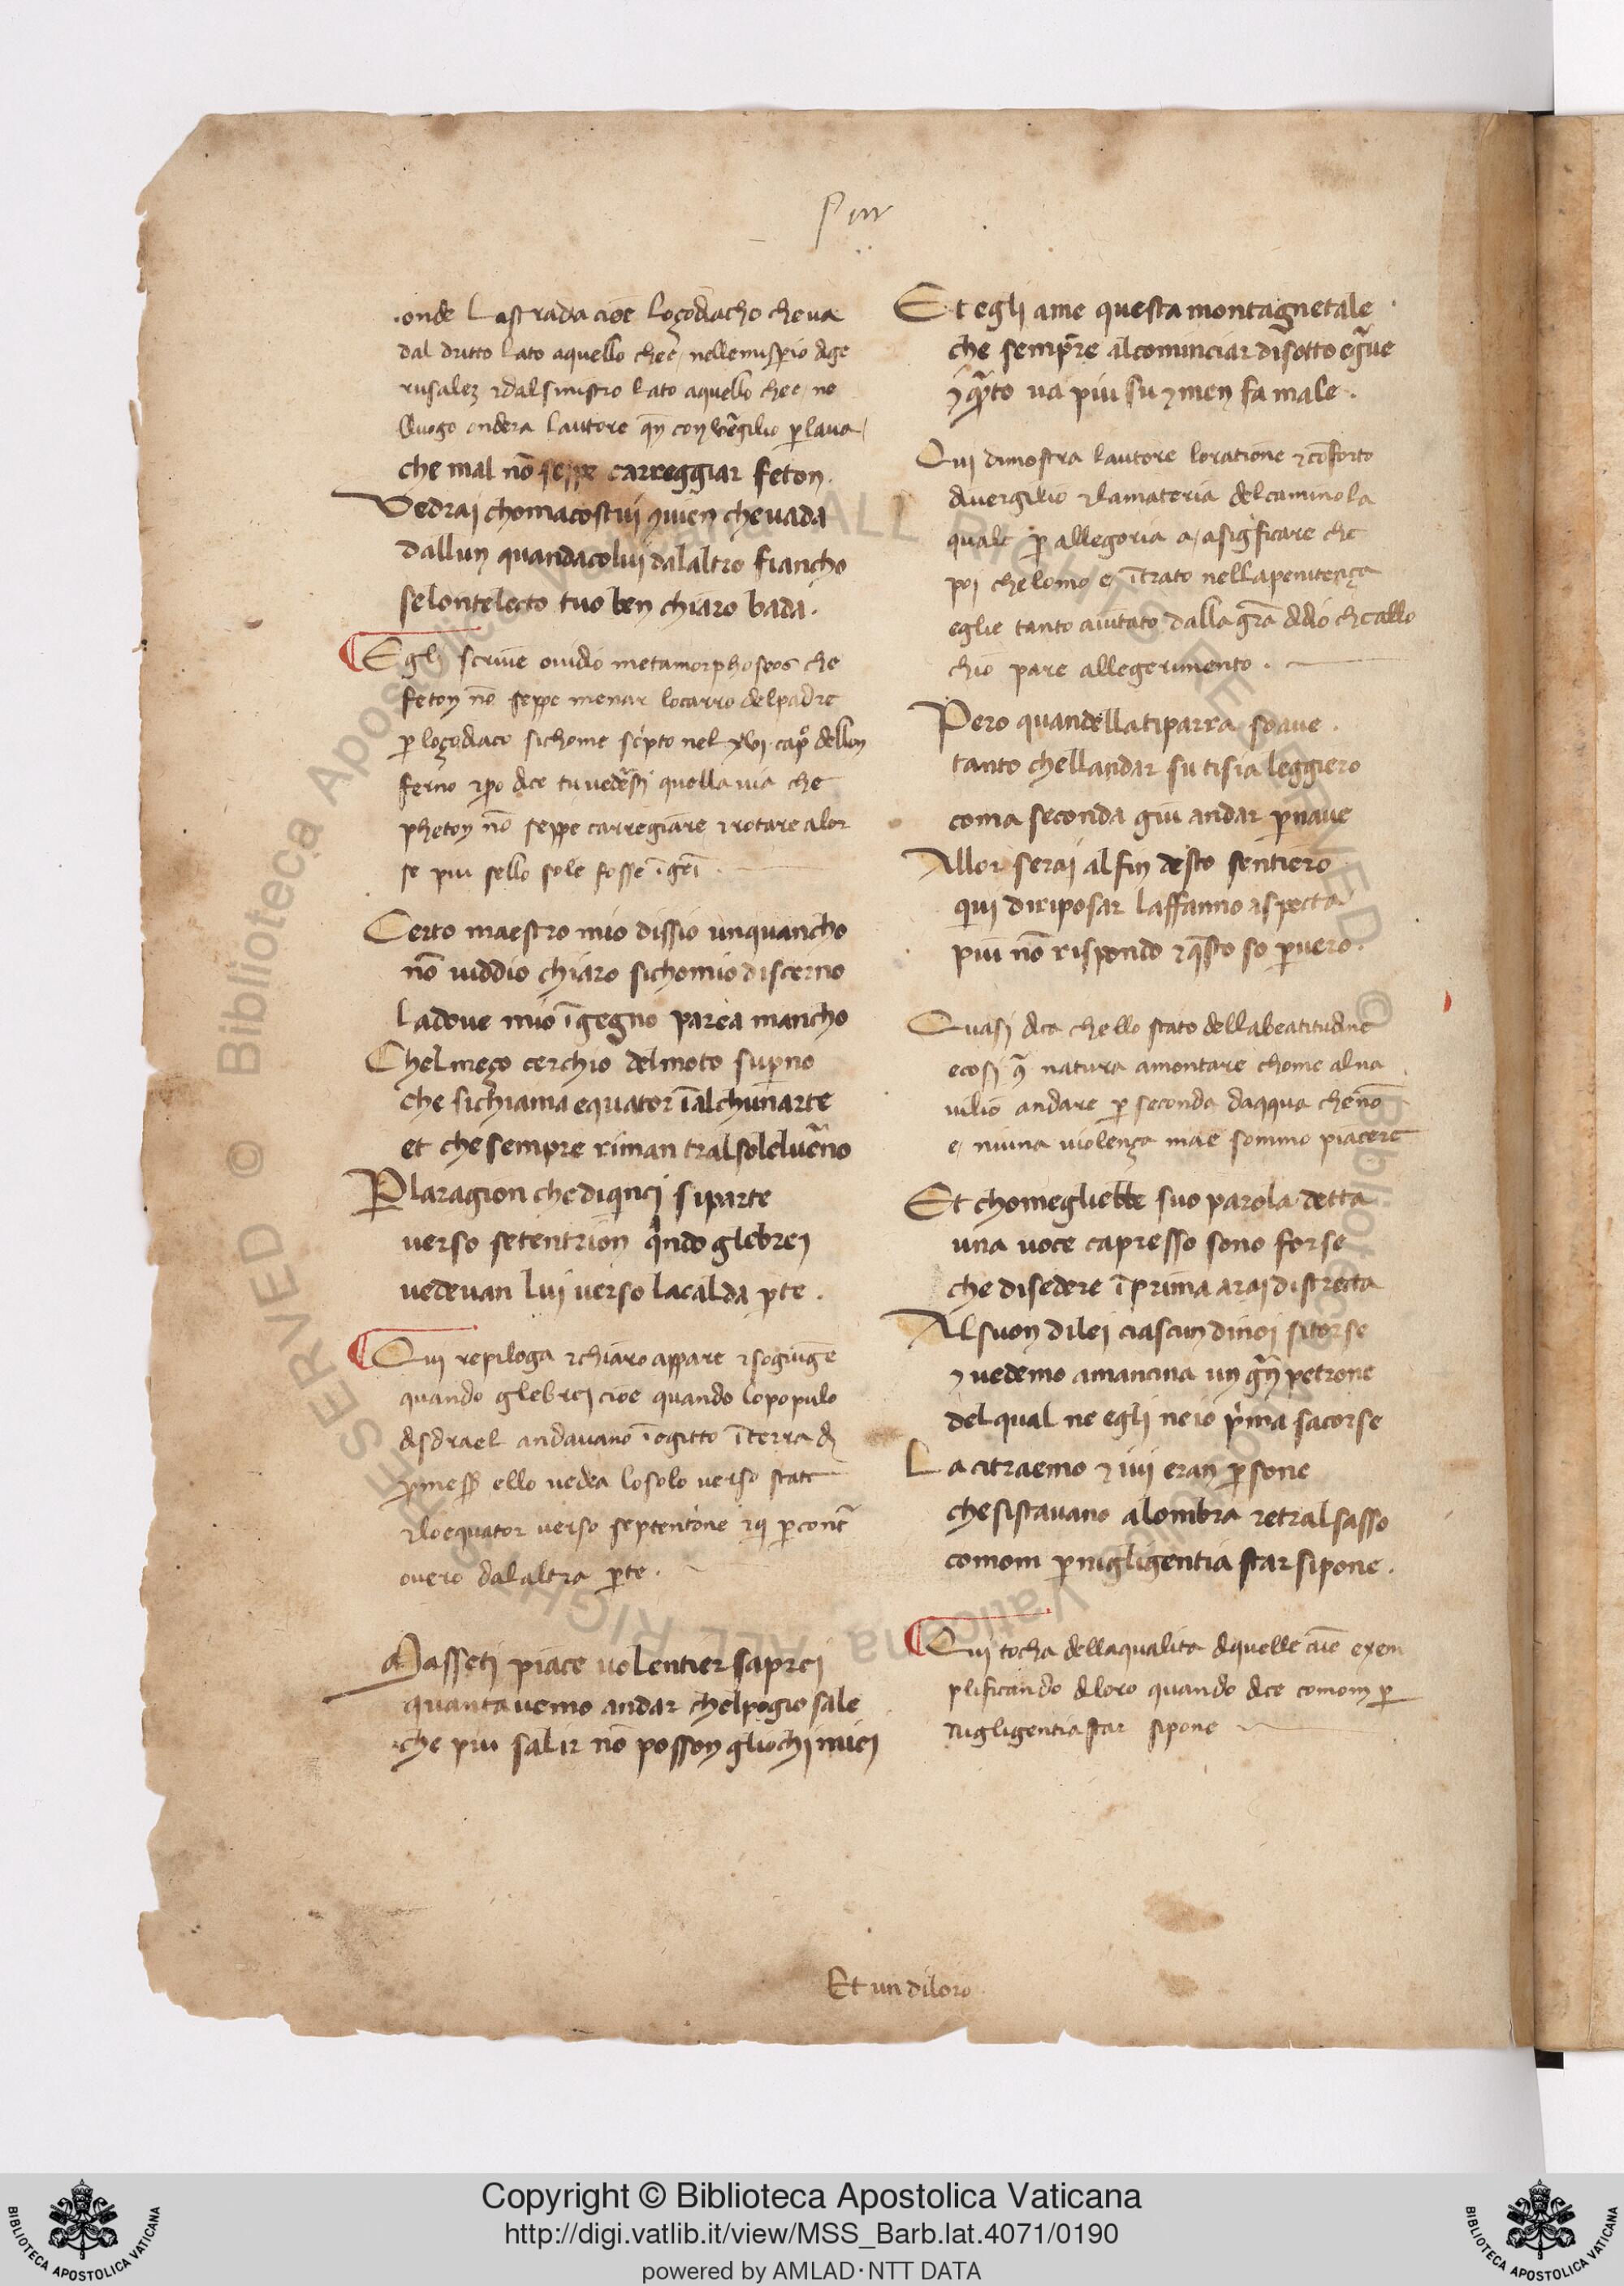 Pur
onde Lastrada cioe loçodiacho che ua
dal dritto lato aquello chee, nellemisperio dige
rusalez ⁊dalsinistro lato aquello chee, no
luogo ondera lautore qn̄ con u̓gilio ꝑlaua
che mal nō seppe carreggiar feton.
Vedrai chomacostui ⁊uien cheuada
dallun quandacolui dalaltro fiancho
selontelecto tuo ben chiaro bada.
Egli scriue ouidio metamorphoseos che
feton nō seppe menar locarro delpadre
ꝑ loçodiaco sichome scipto nel xvij capo dellon
ferno ⁊ꝑo dice tu uedrasi quella uia che
pheton nō seppe carregiare ⁊rotare alor
se piu sello sole fosse
Certo maestro mio dissio unquancho
nō uiddio chiaro sichomio discerno
Ladoue mio īgegno parea mancho
Chelmeço cerchio delmoto suꝑno
che sichiama equator īalchunarte
et che sempre riman tralsolelūeno
Plaragion chediqinci siparte
verso setentrion qndo glebrei
uedeuan lui uerso lacalda ꝑte.
Qui repiloga ⁊chiaro appare ⁊sogiugne
quando glebrei cioe quando lopopulo
disdrael andauano īegitto īterra di
ello uedea losolo uerso state
⁊loequator uerso septentrione ⁊qi ꝑ cont̄
ouero dalaltra ꝑte.
Masseti piace uolentier saprei
quantauemo andar chelpogio sale
che piu salir nō posson gliochi miei
Et egli ame questa montagnetale
che sempre alcominciar disotto egraue
⁊qnto ua piu su ⁊men fa male.
Qui dimostra lautore loratione ⁊cōforto
diuergilio ⁊lamateria delcamino la
quale ꝑ allegoria a, asigficare che
poi chelomo e, ītrato nellapenitença
eglie tanto aiutato dalla gr̄a didio chcallo
chio pare allegerimento.
Pero quandellatiparra soaue.
tanto chellandar su tisia leggiero
coma seconda giu andar ꝑnaue
Allor serai alfin desto sentiero
qui diriposar laffanno aspecta
piu nō rispondo ⁊qsto so ꝑuero.
Quasi dica chello stato dellabeatitudine
ecosi natura amontare chome alna
uilio andare ꝑ seconda daqqua chenō
e, niuna uiolença mae sommo piacere
Et chomegliebbe suo parola detta
una uoce capresso sono forse
che disedere īprima arai distrecta
Alsuon dilei ciascun dinoi sitorse
⁊ uedemo amancina un gn̄ petrone
delqual ne egli neio pima sacorse
La citraemo ⁊iui eran ꝑsone
chesistauano alombra retralsasso
comom ꝑnigligentia starsipone.
Qui tocha dellaqualita diquelle aīe exem
plificando diloro quando dice comom ꝑ
nigligentia star sipone
Et un diloro
Copyright © Biblioteca Apostolica Vaticana
http://digi.vatlib.it/view/MSS_Barb.lat.4071/0190
powered by AMLAD·NTT DATA
BIBLIOTECA APOSTOLICA VATICANA
BIBLIOTECA APOSTOLICA VATICANA